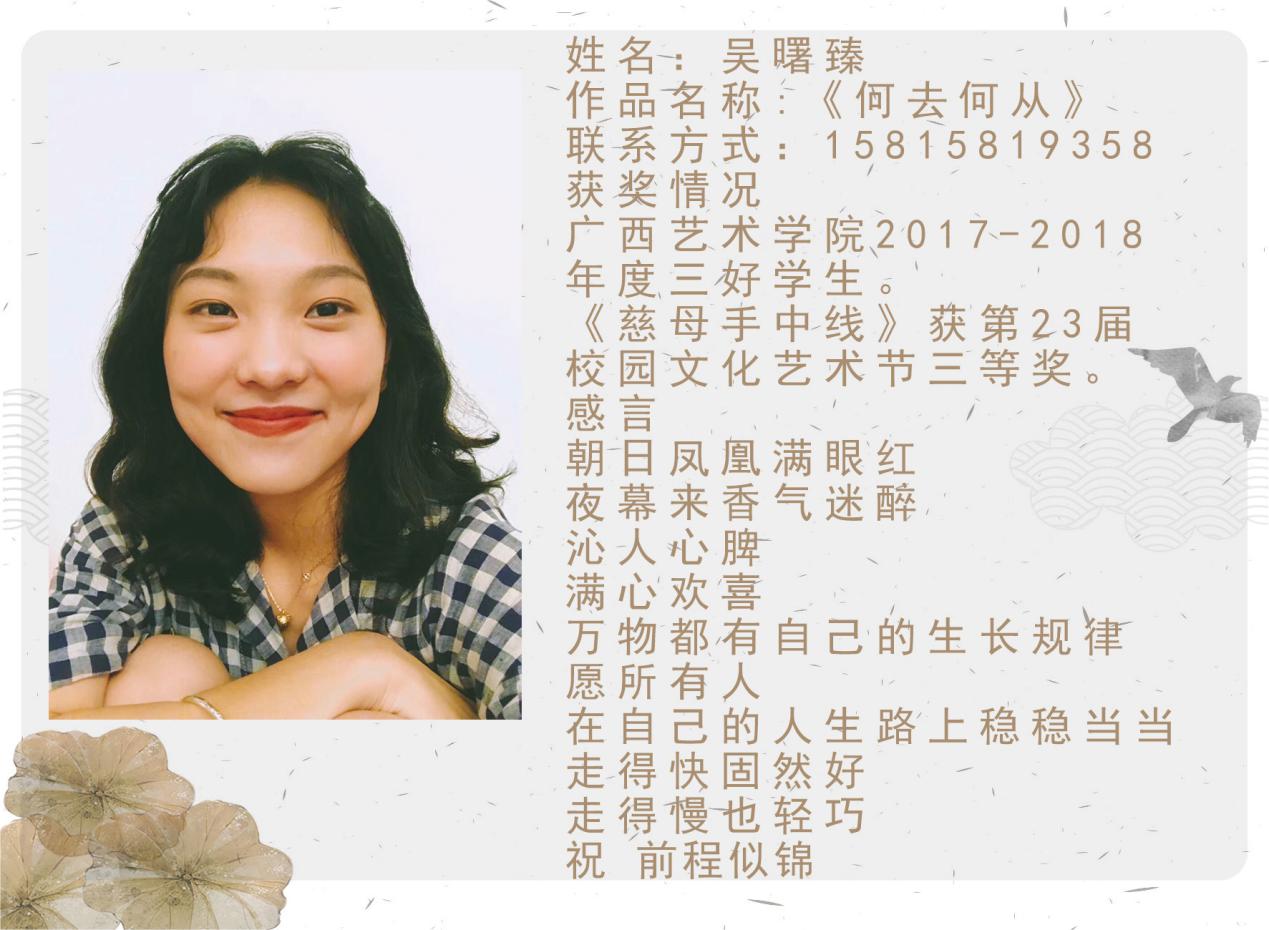 姓名：吴曙臻
作品名称:《何去何从》
联系方式：15815819358
获奖情况
广西艺术学院2017-2018
年度三好学生。
《慈母手中线》获第23届
校园文化艺术节三等奖。
感言
朝日凤凰满眼红
夜幕来香气迷醉
沁人心脾
满心欢喜
万物都有自己的生长规律
愿所有人
在自己的人生路上稳稳当当
走得快固然好
走得慢也轻巧
祝 前程似锦